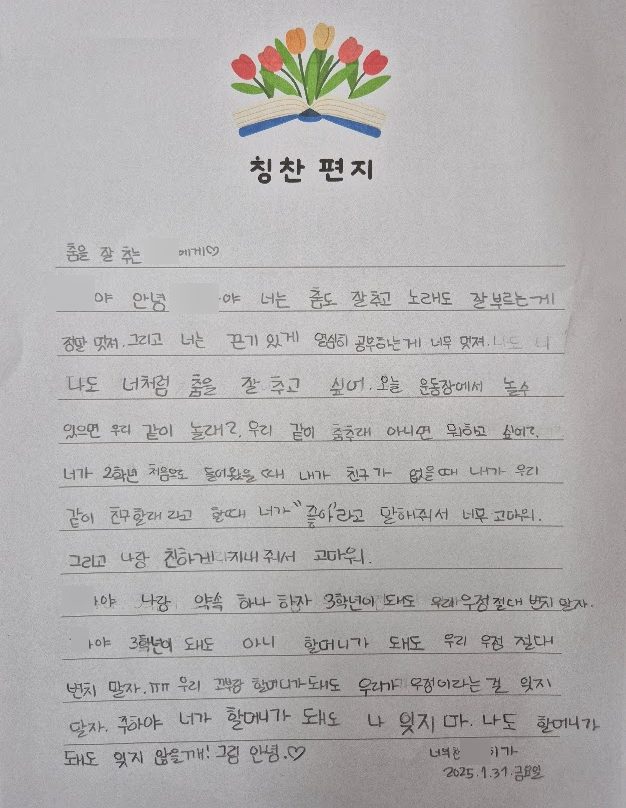 칭찬 편지
춤을 잘 추는 에게♡
야 안녕 야 너는 춤도 잘 추고 노래도 잘 부르는 게
정말 멋져. 그리고 너는 끈기 있게 열심히 공부하는게 너무 멋져.
나도 너처럼 춤을 잘 추고 싶어. 오늘 운동장에서 놀수
있으면 우리 같이 놀래?, 우리 같이 춤추래 아니면 뭐하고 싶어?,
너가 2학년 처음으로 들어왔을 때 내가 친구가 없을때 내가 우리
같이 친구할래 라고 할때 너가 "좋아"라고 말해줘서 너무 고마워.
그리고 나랑 친하게 지내줘서 고마워.
야 나랑 약속 하나 하자 3학년이 돼도 우리 우정 절대 변치 말자.
야 3학년이 돼도 아니 할머니가 돼도 우리 우정 절대
변치 말자. ㅠㅠ 우리 꼬부랑 할머니가 돼도 우리가 우정이라는 걸 잊지
말자. 주하야 너가 할머니가 돼도 나 잊지 마. 나도 할머니가
돼도 잊지 않을깨! 그럼 안녕.♡
가
2025.1.31.금요일